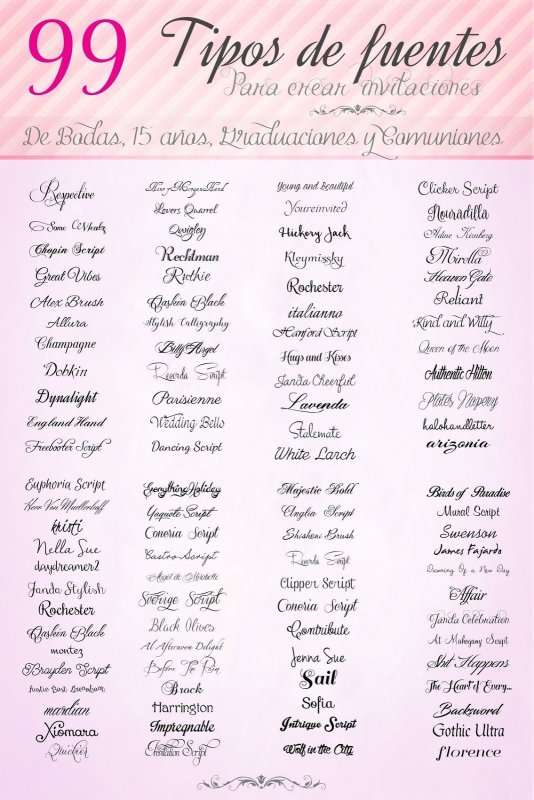 99 Tipos de fuentes
Para crear invitaciones
De Bodas, 15 años, Graduaciones y Comuniones
Respective
Some Weatz
Chopin Script
Great Vibes
Alex Brush
Allura
Champagne
Dobkin
Dynalight
England Hand
Freebooter Script
Lovers Quarrel
Quigley
Rechtman
Ruthie
Qaskin Black
Stylish Calligraphy
Billy Argel
Rewrda Script
Parisienne
Wedding Bells
Dancing Script
Young and Beautiful
Youreinvited
Hickory Jack
Kleymissky
Rochester
italianno
Hanford Script
Hugs and Kisses
Janda Cheerful
Lavenda
Stalemate
White Larch
Clicker Script
Nouradilla
Adine Kirnberg
Mirella
Heaven Gate
Reliant
Kind and Witty
Queen of the Moon
Authentic Hilton
Mutes Nupony
kalohandletter
arizonia
Euphoria Script
Herr Von Muellerhoff
kristi
Nella Sue
daydreamer2
Janda Stylish
Rochester
Qaskin Black
montez
Brayden Script
mardian
Xiomara
Quickier
Everything Holiday
Yaquote Script
Coneria Script
Castro Script
Sverige Script
Black Olives
An Afternoon Delight
Before The Rain
Brock
Harrington
Impregnable
Invitation Script
Majestic Bold
Anglia Script
Shishoni Brush
Rewrda Script
Clipper Script
Coneria Script
Contribute
Jenna Sue
Sail
Sofia
Intrique Script
Wolf in the City
Birds of Paradise
Mural Script
Swenson
James Fajardo
Dawning Of a New Day
Affair
Janda Celebration
At Mahogany Script
Shit Happens
The Heart of Every...
Backsword
Gothic Ultra
florence